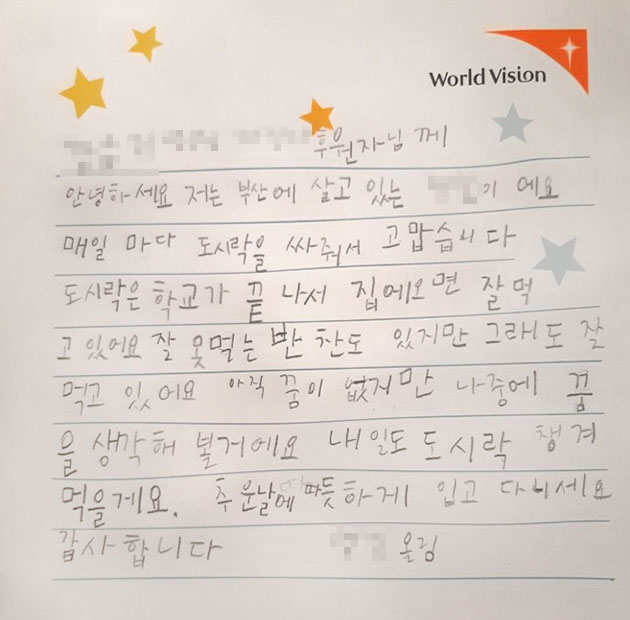 World Vision
후원자님 께
안녕하세요 저는 부산에 살고 있는 이 에요
매일 마다 도시락을 싸줘서 고맙습니다
도시락은 학교가 끝 나서 집에오면 잘먹
고 있어요 잘 못먹는 반 찬도 있지만 그래도 잘
먹고 있어요 아직 꿈이 없지만 나중에 꿈
을 생각해 볼거에요 내일도 도시락 챙겨
먹을게요. 추운날에 따듯하게 입고 다니세요
감사합니다 올림